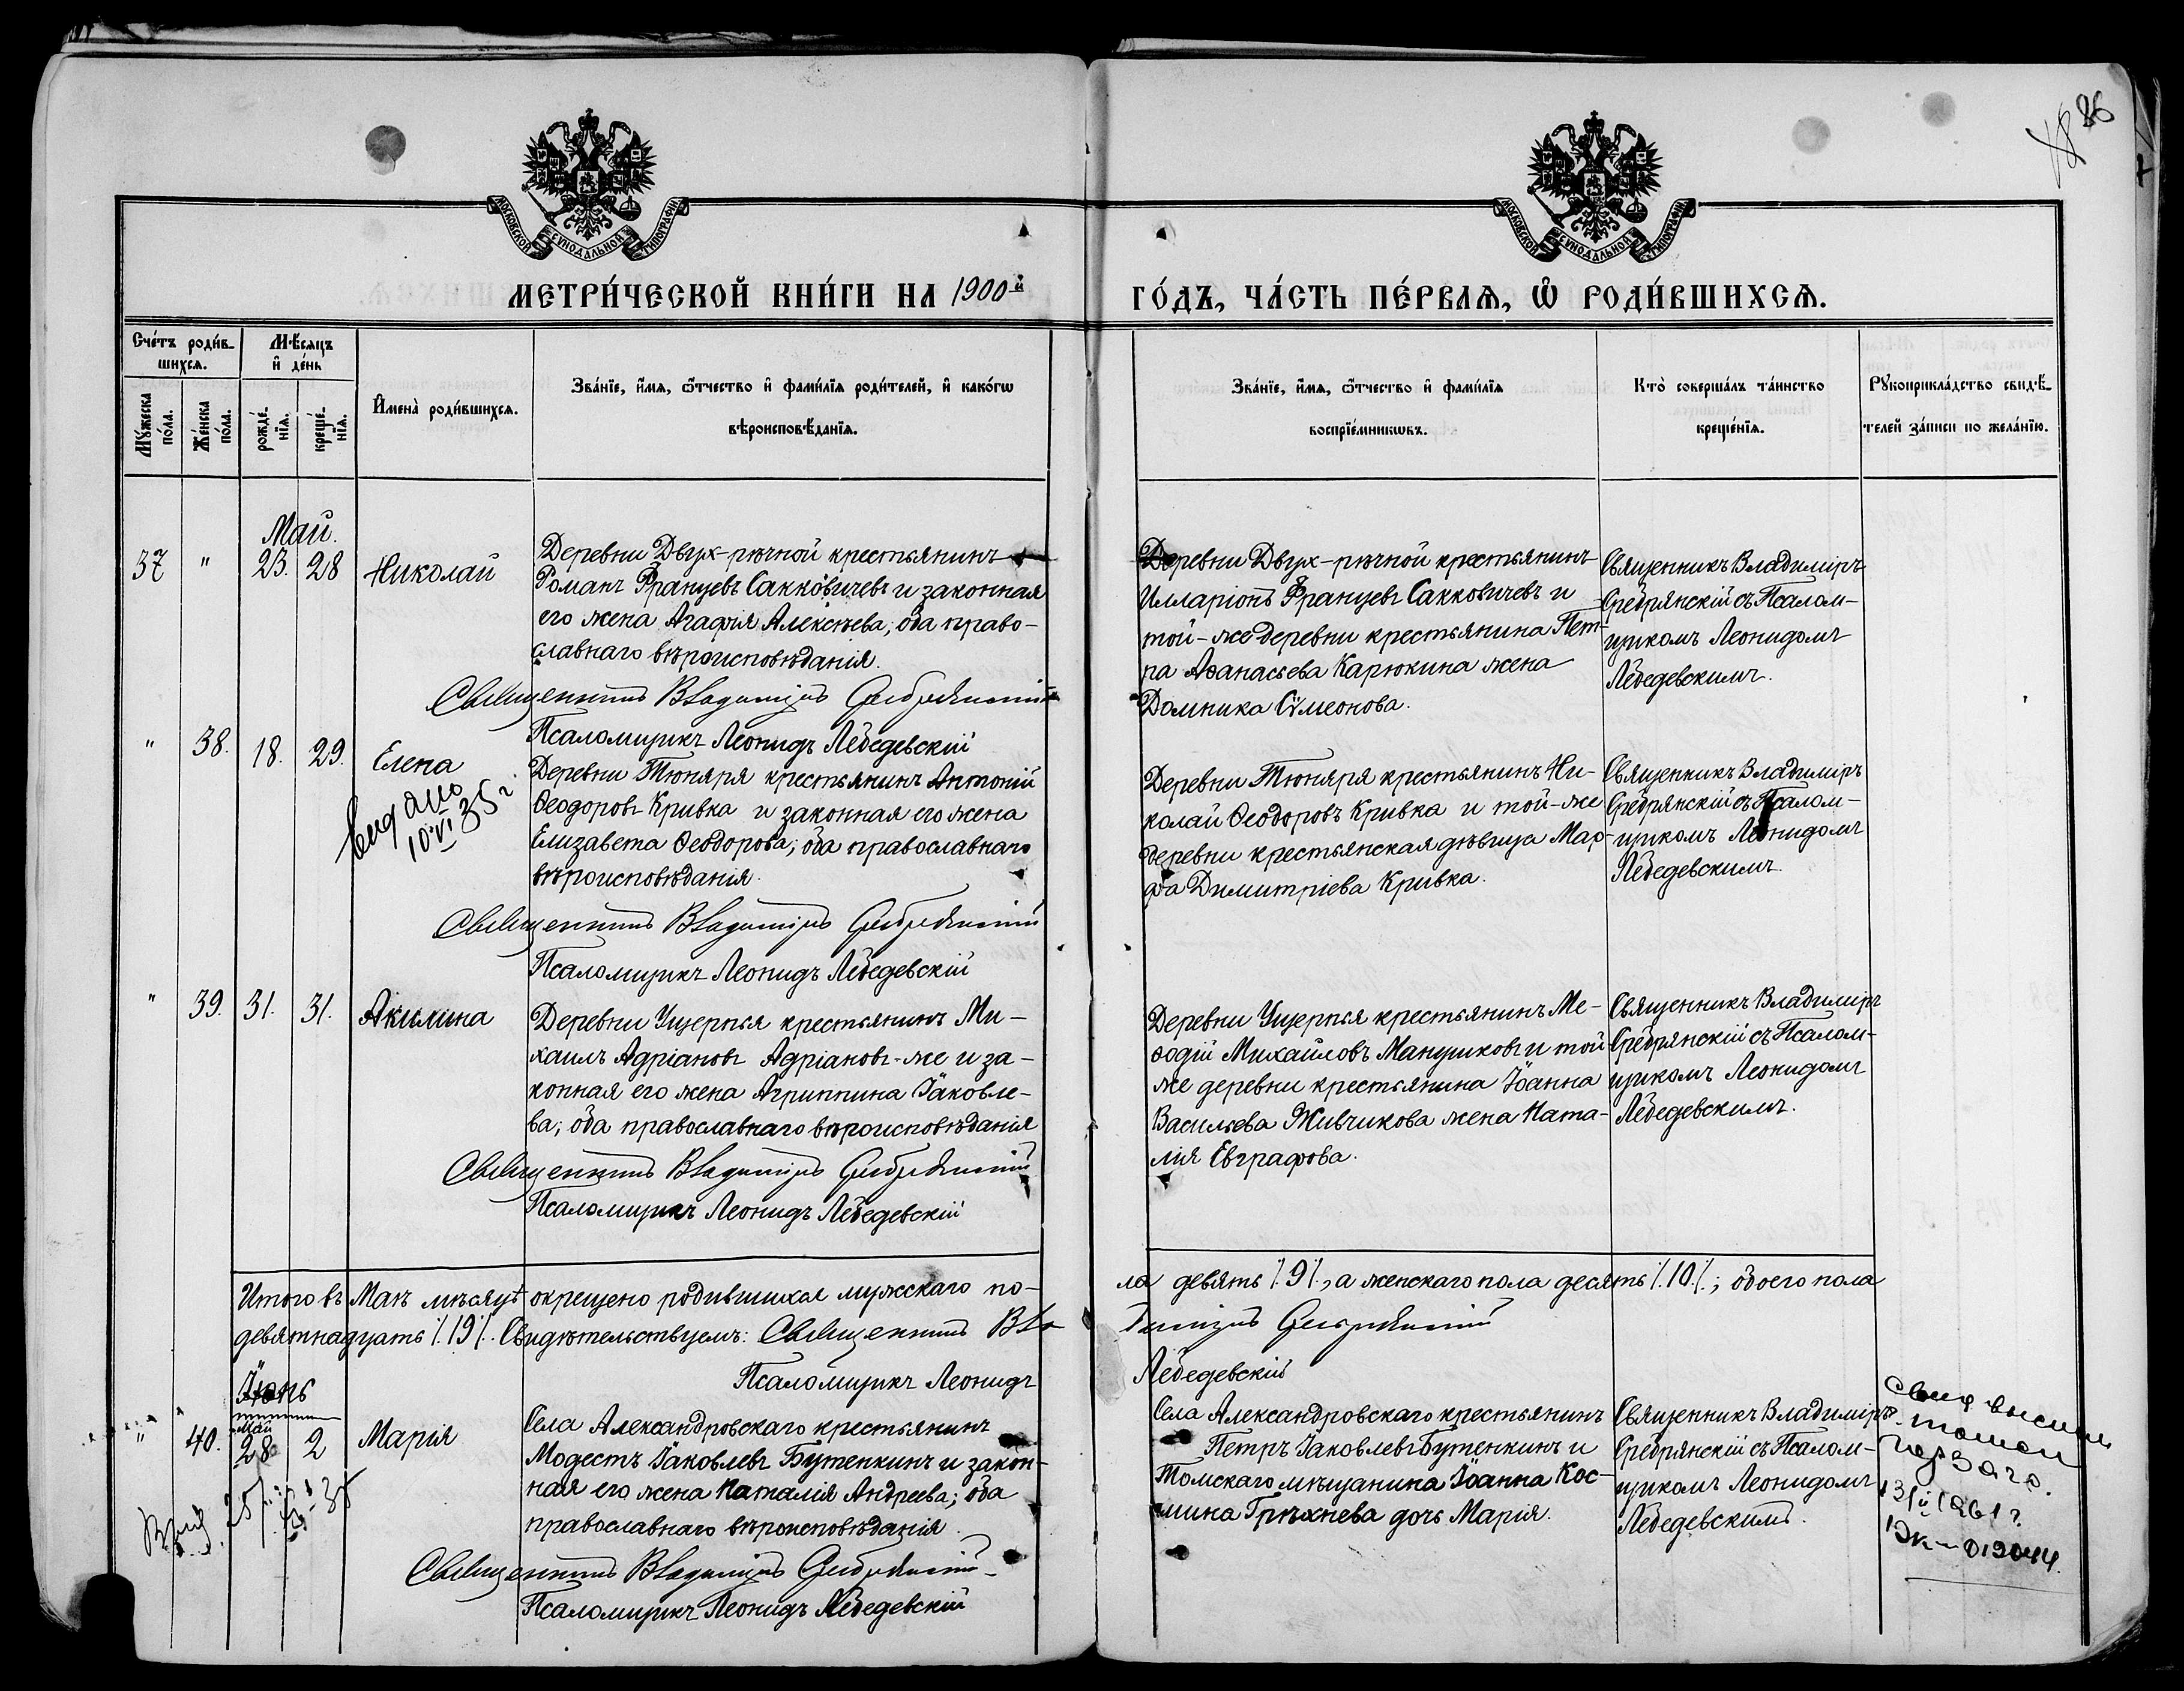 86
МОСКОВСКОЙ СѴНОДАЛЬНОЙ ТИПОГРАФІИ
МОСКОВСКОЙ СѴНОДАЛЬНОЙ ТИПОГРАФІИ
МЕТРИ́ЧЕСКОЙ КНИ́ГИ НА 1900-й
ГО́ДЪ, ЧА́СТЬ ПЕ́РВАѦ, Ѽ РОДИ́ВШИХСѦ.
Сче́тъ роди́в-
шихсѧ.
Мѣ́сѧцъ
и҆ де́нь
Мꙋ́жеска
по́ла.
Же́нска
по́ла.
рожде́-
нїѧ.
креще́-
нїѧ.
И҆мена̀ роди́вшихсѧ.
Зва́нїе, и҆́мѧ, ѻ҆́тчество и҆ фами́лїѧ роди́телей, и҆ како́гѡ
вѣроисповѣ́данїѧ.
Зва́нїе, и҆́мѧ, ѻ҆́тчество и҆ фами́лїѧ
воспрїе́мникѡвъ.
Кто̀ соверша́лъ та́инство
креще́нїѧ.
Рꙋкоприкла́дство свидѣ́-
телей за́писи по жела́нїю.
Май.
37 " 23. 28 Николай
Деревни Двух-рѣчной крестьянинъ
Романъ Францевъ Сакковичевъ и законная
его жена Агафія Алексѣева; оба право-
славнаго вѣроисповѣданія.
Священникъ Владимiръ Сребрянскiй
Псаломщикъ Леонидъ Лебедевскій
Деревни Двух-рѣчной крестьянинъ
Илларіонъ Францевъ Сакковичевъ и
той-же деревни крестьянина Пет-
ра Аѳанасьева Карюкина жена
Домника Сѵмеонова.
Священникъ Владиміръ
Сребрянскій съ Псалом-
щикомъ Леонидомъ
Лебедевскимъ.
" 38. 18. 29. Елена
Выдано
10/VI 35 г
Деревни Тюняря крестьянинъ Антоній
Ѳеодоровъ Кривка и законная его жена
Елизавета Ѳеодорова; оба православнаго
вѣроисповѣданія.
Священникъ Владимiръ Сребрянскiй
Псаломщикъ Леонидъ Лебедевскій
Деревни Тюняря крестьянинъ Ни-
колай Ѳеодоровъ Кривка и той-же
деревни крестьянская дѣвица Мар-
ѳа Димитріева Кривка.
Священникъ Владиміръ
Сребрянскій съ Псалом-
щикомъ Леонидомъ
Лебедевскимъ.
" 39. 31. 31. Акилина
Деревни Ущерпья крестьянинъ Ми-
хаилъ Адріановъ Адріановъ-же и за-
конная его жена Агриппина Іаковле-
ва; оба православнаго вѣроисповѣданія
Священникъ Владимiръ Сребрянскiй
Псаломщикъ Леонидъ Лебедевскій
Деревни Ущерпья крестьянинъ Ме-
ѳодій Михайловъ Манушковъ и той
же деревни крестьянина Іоанна
Васильева Живчикова жена Ната-
лія Евграфова.
Священникъ Владиміръ
Сребрянскій съ Псалом-
щикомъ Леонидомъ
Лебедевскимъ.
Итого въ Маѣ мѣсяцѣ окрещено родившихся мужскаго по-
ла девять /.9/., а женскаго пола десять /.10./; обоего пола
девятнадцать /.19/. Свидѣтельствуемъ: Священникъ Вла
димiръ Сребрянскiй
Псаломщикъ Леонидъ
Лебедевскій
Іюнь
Май
" 40. 28 2 Марія
Села Александровскаго крестьянинъ
Модестъ Іаковлевъ Бутенкинъ и закон-
ная его жена Наталія Андреева; оба
православнаго вѣроисповѣданія.
Священникъ Владимiръ Сребрянскiй
Псаломщикъ Леонидъ Лебедевскій
Села Александровскаго крестьянинъ
Петръ Іаковлевъ Бутенкинъ и
Томскаго мѣщанина Іоанна Кос-
мина Грѣхнева дочь Марія.
Священникъ Владиміръ
Сребрянскій съ Псалом-
щикомъ Леонидомъ
Лебедевскимъ.
1961 г.